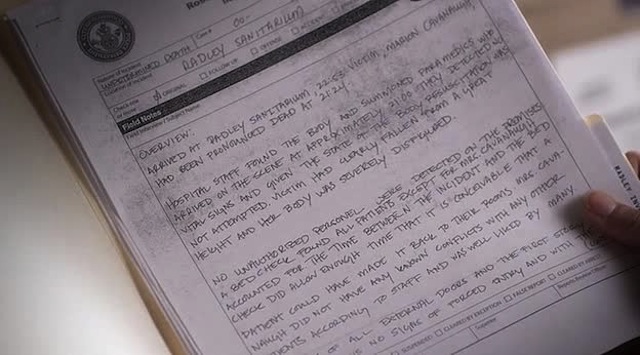 Case # 00-
Nature of Incident
UNDETERMINED DEATH
Location of Incident
RADLEY SANITARIUM
Check one
or more
ORIGINAL
FOLLOW UP
OFFENSE
INCIDENT
Field Notes
Field Interview / Subject Name
OVERVIEW:
ARRIVED AT RADLEY SANITARIUM, 22:53. VICTIM, MARION CAVANAUGH,
HAD BEEN PRONOUNCED DEAD AT 21:24.
HOSPITAL STAFF FOUND THE BODY AND SUMMONED PARAMEDICS WHO
ARRIVED ON THE SCENE AT APPROXIMATELY 21:00. THEY DETECTED NO
VITAL SIGNS AND GIVEN THE STATE OF THE BODY, RESUSCITATION WAS
NOT ATTEMPTED. VICTIM HAD CLEARLY FALLEN FROM A GREAT
HEIGHT AND HER BODY WAS SEVERELY DISFIGURED.
NO UNAUTHORIZED PERSONNEL WERE DETECTED ON THE PREMISES.
A BED CHECK FOUND ALL PATIENTS EXCEPT FOR MRS. CAVANAUGH
ACCOUNTED FOR. THE TIME BETWEEN THE INCIDENT AND THE BED
CHECK DID ALLOW ENOUGH TIME THAT IT IS CONCEIVABLE THAT A
PATIENT COULD HAVE MADE IT BACK TO THEIR ROOMS. MRS. CAVA-
NAUGH DID NOT HAVE ANY KNOWN CONFLICTS WITH ANY OTHER
PATIENTS ACCORDING TO STAFF AND WAS WELL LIKED BY MANY.
OF ALL EXTERNAL DOORS AND THE FIRST
NO SIGNS OF FORCED ENTRY AND WITH
SUSPENDED
CLEARED BY EXCEPTION
FALSE REPORT
CLEARED BY ARREST